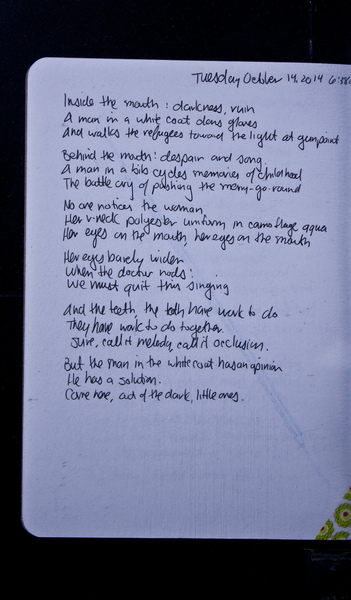 Tuesday October 14, 2014 6:
Inside the mouth: darkness, ruin
A man in a white coat dons gloves
And walks the refugees toward the light at gunpoint
Behind the mouth: despair and song.
A man in a bib cycles memories of childhood
The battle cry of pushing the merry-go-round
No one notices the woman
Her v-neck polyester uniform in camouflage aqua
Her eyes on the mouth, her eyes on the mouth
Her eyes barely widen
When the doctor nods:
We must quit this singing
And the teeth, the teeth have work to do
They have work to do together.
Sure, call it melody, call it occlusion.
But the man in the white coat has an opinion
He has a solution.
Come here, out of the dark, little ones.